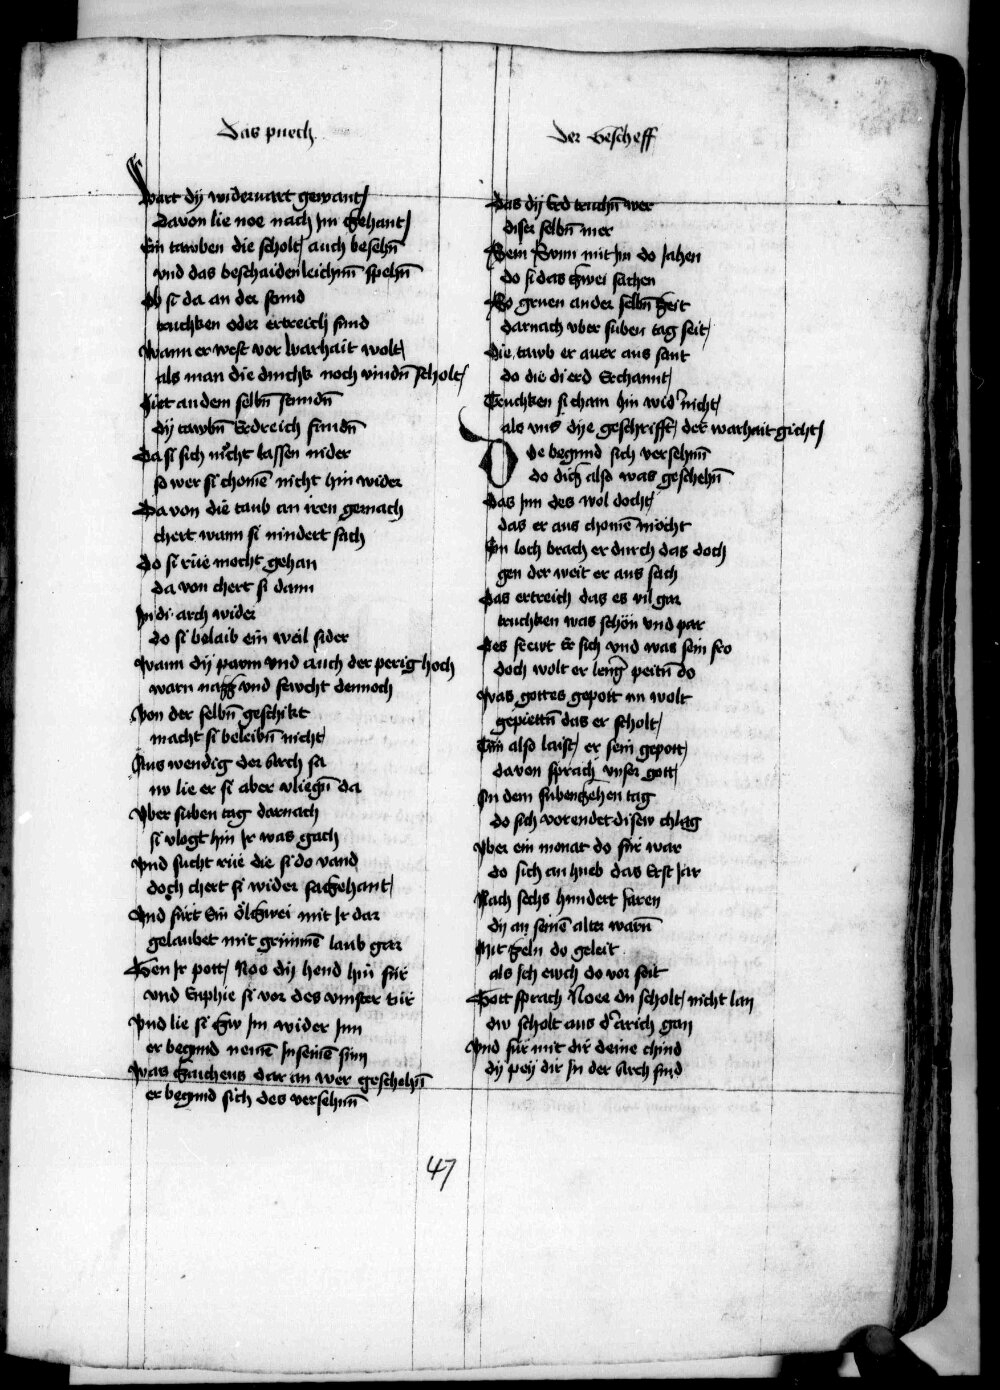 Das puech
Der Gescheff
Wart dy widervart gewant
Davon lie noe nach Im zehant
Ein tawben die scholt auch besehn̄
vnd das beschaidenleichnn̄ spehn̄
Ob si da an der stund
truchken oder ertreich fund
Wann er west vor warhait wolt
als man die duchk noch vindn̄ scholt
Hiet an dem selbn̄ stundn̄
dy tawbn̄ Erdreich fundn̄
Da si sich nicht lassen nider
so wer si chomē nicht hin wider
Davon die taub an iren gemach
chert wann si nindert sach
Do si rue mocht gehan
da von chert si dann
In di arch wider
do si belaib ein weil sider
Wann dy pawm vnd auch der perig hoch
warn nazz vnd fewcht dennoch
Von der selbn̄ geschikt
macht si beleibn̄ nicht
Aus wendig der Arch sa
nv lie er si aber vliegn̄ da
Vber siben tag darnach
si vlogt hin Ir was gach
Vnd sucht rue die si do vand
doch chert si wider sazehant
Vnd furt Ein ölczwei mit Ir dar
gelaubet mit grunnē laub gar
Gen Ir pott Noe dy hend hin fur
vnd Enphie si vor des venster tur
Vnd lie si zw Im wider Inn
er begund nemē In seinē sinn
Was zaichens dar an wer geschehn̄
er begund sich des versehnn̄
Das dy Erd truchn̄ wer
diser selbn̄ mer
Sein Sunn mit Im do Iahen
do si das zwei sachen
So gruen an der selbn̄ zeit
darnach vber siben tag seit
die tawb er aver aus sant
do die di erd Erchannt
Truchken si cham hin wid' nicht
als vns dye geschrifft der warhait gicht
Noe begund sich versehnn̄
do dicz also was geschehn̄
Das Inn des wol docht
das er aus chomē möcht
Ein loch brach er durch das doch
gen der weit er aus sach
Das ertreich das es vil gar
truchken was schön vnd par
Des frewt Er sich vnd was sein fro
doch wolt er leng' peitn̄ do
Was gottes gepott nn wolt
gepiettn̄ das er scholt
Enn also laist er sein gepott
davon sprach vnser gott
An dem sibenzehen tag
do sich vorendet disew chlag
Vber ein monat do fur war
do sich an hueb das Erst Iar
Nach sechs hundert Iaren
dy an seinē alter warn̄
Mit zeln do geleit
als Ich ewch do vor seit
Gott sprach Noee du scholt nicht lan
dw scholt aus d' arich gan
Vnd fur mit dir deine chind
dy pey dir In der Arch sind
47